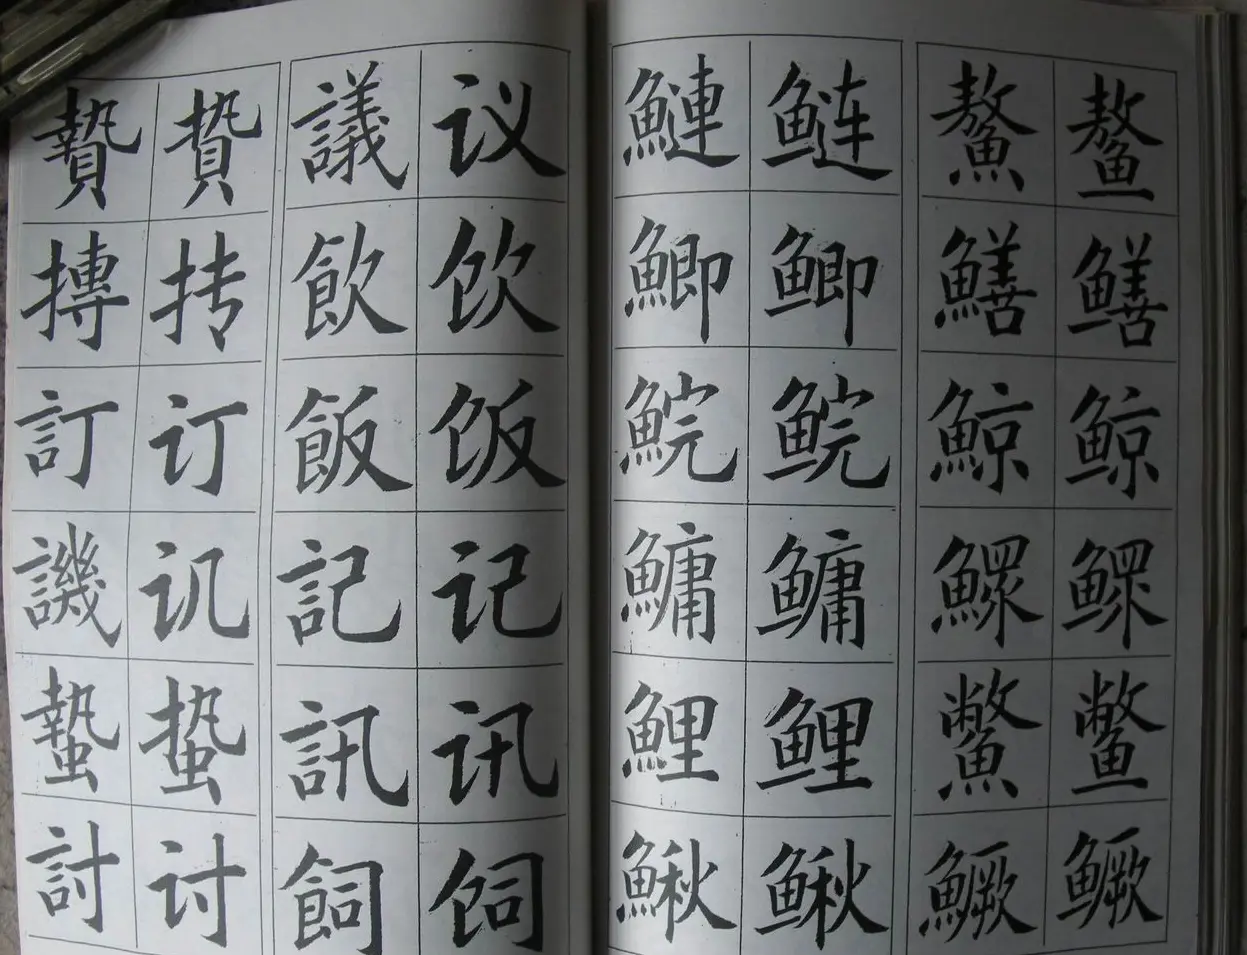 贄 贽 議 议 鰱 鲢 鰲 鳌
摶 抟 飲 饮 鯽 鲫 鱔 鳝
訂 订 飯 饭 鯇 鲩 鯨 鲸
譏 讥 記 记 鱅 鳙 鰥 鳏
蟄 蛰 訊 讯 鯉 鲤 鱉 鳖
討 讨 飼 饲 鰍 鳅 鱖 鳜